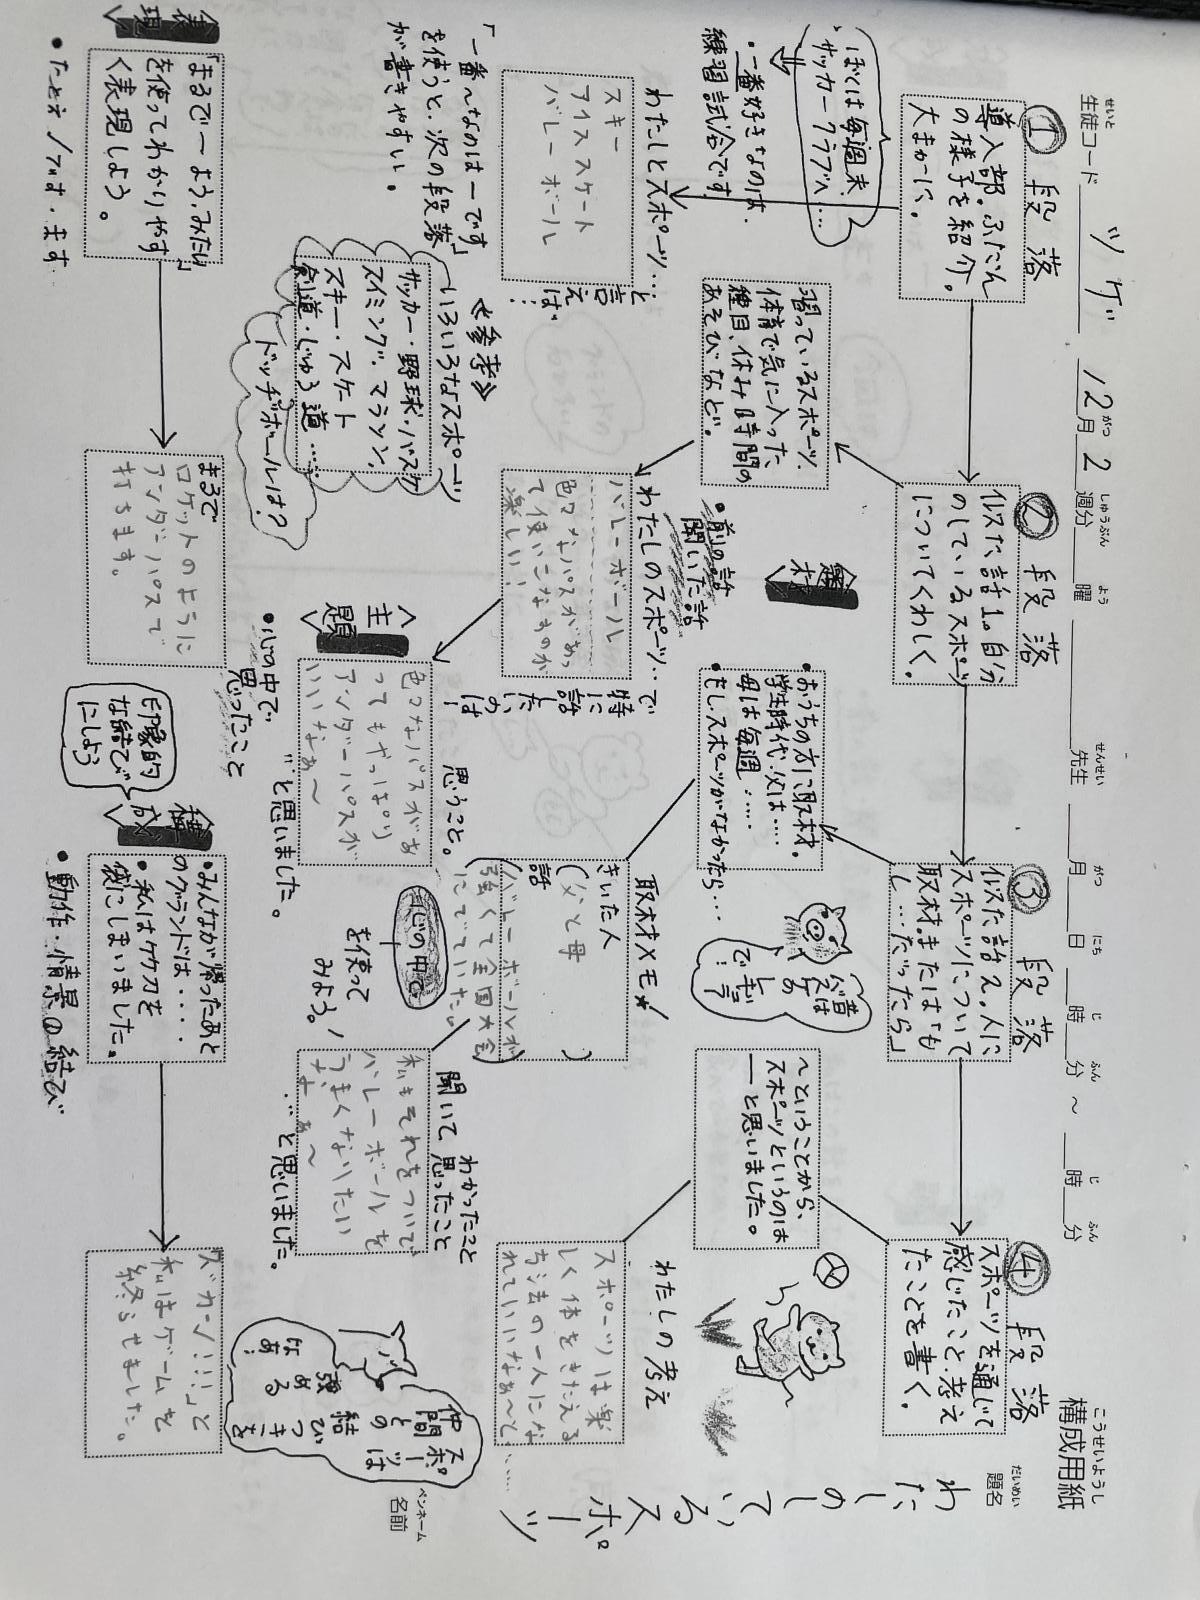 構成用紙
こうせいようし
生徒コード
せいと
ツゲ
12月2週分
がつ
しゅうぶん
曜
よう
先生
せんせい
月
がつ
日
にち
時
じ
分
ふん
～
時
じ
分
ふん
題名
だいめい
わたしのしているスポーツ
ペンネーム
名前
① 段落
導入部。ふだん
の様子を紹介。
大まかに。
ぼくは毎週末、
サッカークラブへ…
・一番好きなのは、
練習試合です
わたしとスポーツ…
と言えば…
スキー
アイススケート
バレーボール
「一番～なのは―です」
を使うと、次の段落
が書きやすい。
《参考》
～いろいろなスポーツ
サッカー・野球・バスケ
スイミング・マラソン、
スキー・スケート
剣道・じゅう道……
ドッヂボールは？
表現
「まるで―よう、みたい」
を使ってわかりやす
く表現しよう。
・たとえ/です・ます
② 段落
似た話1。自分
のしているスポーツ
についてくわしく。
習っているスポーツ、
体育で気に入った
種目、休み時間の
あそびなど。
・前の話
聞いた話
わたしのスポーツ…で
特に
話したいのは！
バレーボール
色々なパスがあっ
て使いこなすのが
楽しい！
〈主題〉
・心の中で
思ったこと
思うこと。
色々なパスがあ
ってもやっぱり
アンダーパスが
いいなぁ～
…と思いました。
まるで
ロケットのように
アンダーパスで
打ちます。
③ 段落
似た話2。人に
スポーツについて
取材。または「も
し…だったら」
・おうちの方に取材。
学生時代、父は…
母は毎週……
・もしスポーツがなかったら…
取材メモ★
きいた人
（父と母）
話
（バレーボールが
強くて全国大会
にでていた。）
心の中で
を使って
みよう！
わかったこと
聞いて思ったこと
私もそれをついで
バレーボールを
うまくなりたい
なぁ～
…と思いました。
印象的
な結びに
しよう
〈構成〉
・みんなが帰ったあと
のグランドは…
・私はグラブを
袋にしまいました。
・動作・情景の結び
④ 段落
スポーツを通じて
感じたこと、考え
たことを書く。
～ということから、
スポーツというのは
―と思いました。
わたしの考え
スポーツは楽
しく体をきたえる
方法の一人にな
れていいなぁ～と……
「ズカーン!!!」と
私はゲームを
終らせました。
スポーツは
仲間との
結びつきを
強める
なあ！